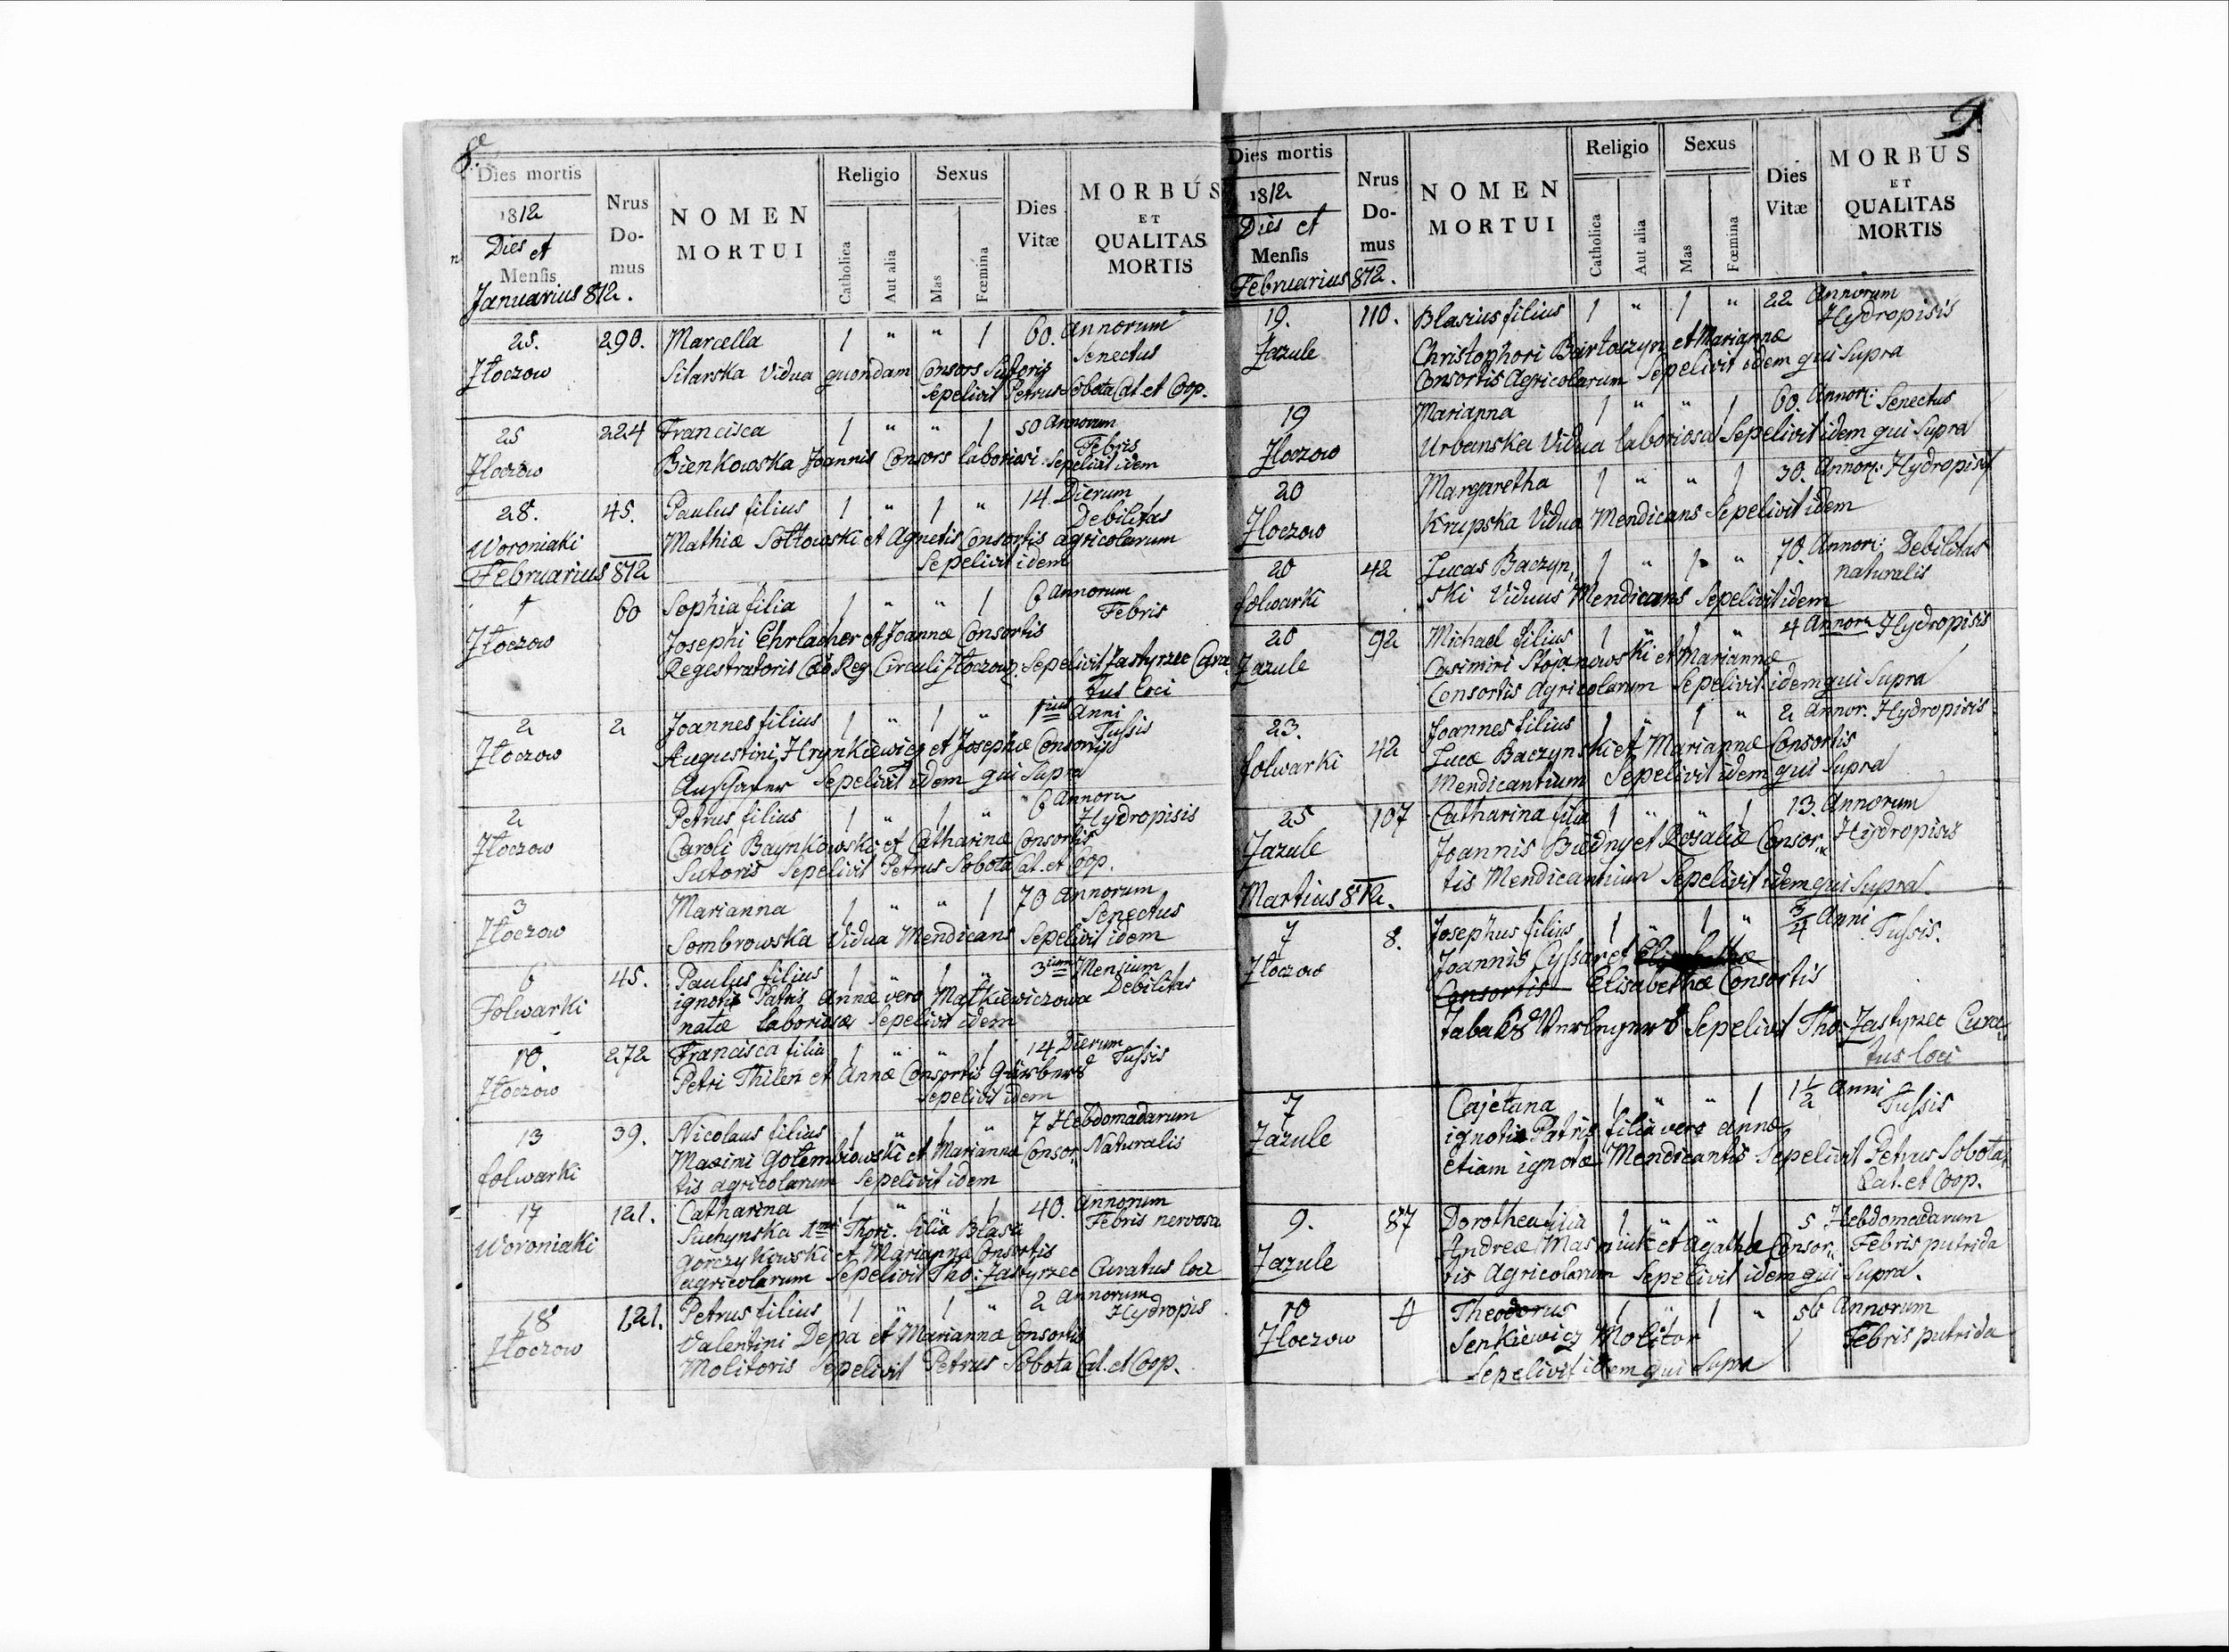 8.
Dies mortis
1812
Dies et
Mensis
Januarius 812.
Nrus
Do-
mus
NOMEN
MORTUI
Religio
Catholica
Aut alia
Sexus
Mas
Fœmina
Dies
Vitæ
MORBUS
ET
QUALITAS
MORTIS
25. 290. Marcella 1 " " 1 60. Annorum
Złoczow Senectus
Sitarska Vidua quondam Consors Sutoris
Sepelivit Petrus Sobota Cat. et Coop.
25 224 Francisca 1 " " 1 50 Annorum
Febris
Złoczow Bienkowska Joannis Consors laboriosi. Sepelivit idem
28. 45. Paulus filius 1 " 1 " 14. Dierum
Debilitas
Woroniaki Mathiæ Sottowski et Agnetis Consortis agricolarum
Sepelivit idem
Februarius 812
1 60 Sophia filia 1 " " 1 6 Annorum
Febris
Złoczow Josephi Ehrlacher et Joannæ Consortis
Regestratoris Cæs Reg Circuli Złoczow. Sepelivit Zastyrzec Cura
tus loci
2 2 Joannes filius 1 " 1 " 1 Anni
Tussis
Złoczow Augustini Hrynkiewicz et Josephæ Consortis
Sepelivit idem qui Supra
2 Petrus filius 1 " 1 " 6 Annoru
Hydropisis
Złoczow Caroli Baynkowski et Catharinæ Consortis
Sutoris Sepelivit Petrus Sobota Cat. et Coop.
3 Marianna 1 " " 1 70 Annorum
Senectus
Złoczow Sombrowska Vidua Mendicans Sepelivit idem
6 45. Paulus filius 1 " 1 " 3ium Mensium
Debilitas
Folwarki ignoti Patris Annæ vero Matkiewiczowa
natæ laboriosæ Sepelivit idem
10. 272 Francisca filia 1 " " 1 14 Dierum
Tussis
Złoczow Petri Thilen et Annæ Consortis Gürbers
Sepelivit idem
13 39. Nicolaus filius 1 " 1 " 7 Hebdomadarum
folwarki Maximi Gołembiowski et Mariannæ Consor- Naturalis
tis agricolarum Sepelivit idem
17 121. Catharina 1 " " 1 40. Annorum
Woroniaki Suchynska 1mi Thori. filia Blasii Febris nervosa
Gorczykowski et Mariannæ Consortis
agricolarum Sepelivit Tho: Zastyrzec Curatus loci
18 121. Petrus filius 1 " 1 " 2 Annorum
Hydropis
Złoczow Valentini Depa et Mariannæ Consortis
Molitoris Sepelivit Petrus Sobota Cat. et Coop.
9.
Dies mortis
1812
Dies et
Mensis
Februarius 812.
Nrus
Do-
mus
NOMEN
MORTUI
Religio
Catholica
Aut alia
Sexus
Mas
Fœmina
Dies
Vitæ
MORBUS
ET
QUALITAS
MORTIS
19. 110. Blasius filius 1 " 1 " 22 Annorum
Hydropisis
Zazule Christophori Bartoczyn et Mariannæ
Consortis Agricolarum Sepelivit idem qui Supra
19 Marianna 1 " " 1 60. Annor: Senectus
Złoczow Urbanska Vidua laboriosa Sepelivit idem qui Supra
20 Margaretha 1 " " 1 30. Annor: Hydropisis
Złoczow Krupska Vidua Mendicans Sepelivit idem
20 42 Lucas Baczyn, 1 " 1 " 70. Annor: Debilitas
naturalis
folwarki ski Viduus Mendicans Sepelivit idem
20 92 Michael filius 1 " 1 " 4 Annoru Hydropisis
Zazule Casimiri Stojanowski et Mariannæ
Consortis Agricolarum Sepelivit idem qui Supra
23. 42 Joannes filius 1 " 1 " 2 Annor. Hydropisis
folwarki Lucæ Baczynski et Mariannæ Consortis
Mendicantium Sepelivit idem qui Supra
25 107 Catharina filia 1 " " 1 13. Annorum
Zazule Joannis Biedny et Rosaliæ Consor- Hydropisis
tis Mendicantium Sepelivit idem qui Supra
Martius 812.
7 8. Josephus filius 1 " 1 " 3/4 Anni Tussis.
Złoczow Joannis Lyssar et Elisabethæ
Consortis Elisabethæ Consortis
Sepelivit Tho: Zastyrzec Cura-
tus loci
7 Cajetana 1 " " 1 1 1/2 Anni Tussis
Zazule ignoti Patris filia vero Annæ
etiam ignotæ Mendicantis Sepelivit Petrus Sobota
Cat. et Coop.
9. 87 Dorothea filia 1 " " 1 5 Hebdomadarum
Zazule Andreæ Masniuk et Agathæ Consor- Febris putrida
tis Agricolarum Sepelivit idem qui Supra.
10 4 Theodorus 1 " 1 " 56 Annorum
Złoczow Senkiewicz Molitor Febris putrida
Sepelivit idem qui Supra